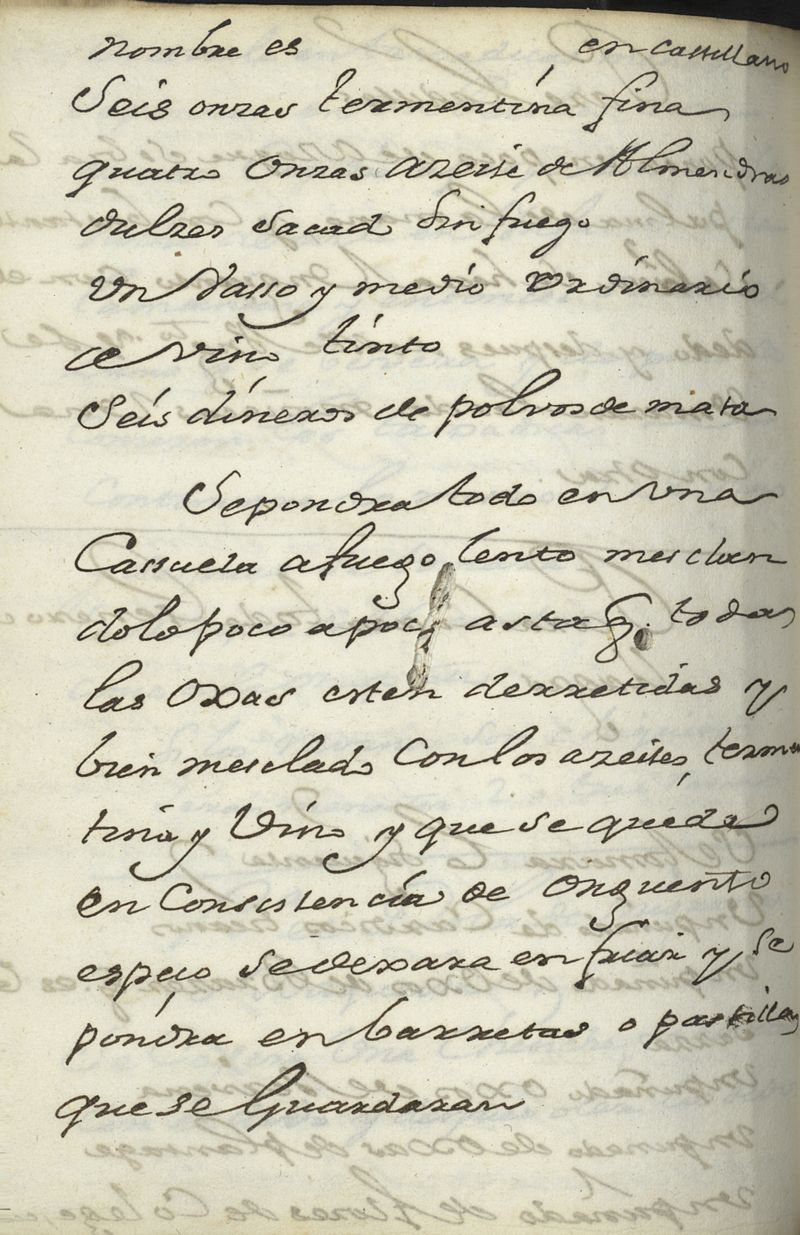 nombre es en castillano
Seis onzas termentina fina
quatro onzas azeite de Almendras
dulzes sacad sin fuego
Un Vasso y medio ordinario
de vino tinto
Seis dineros de polvos de mata
Se pondra todo en una
Cassuela a fuego lento mesclan
dolo poco a poco asta q. todas
las oxas esten derretidas y
bien mesclado con los azeites, termen
tina y Vino y que se quede
en Consistencia de onguento
espeso se dexara enfriar y se
pondra en barretas o pastillas
que se Guardaran